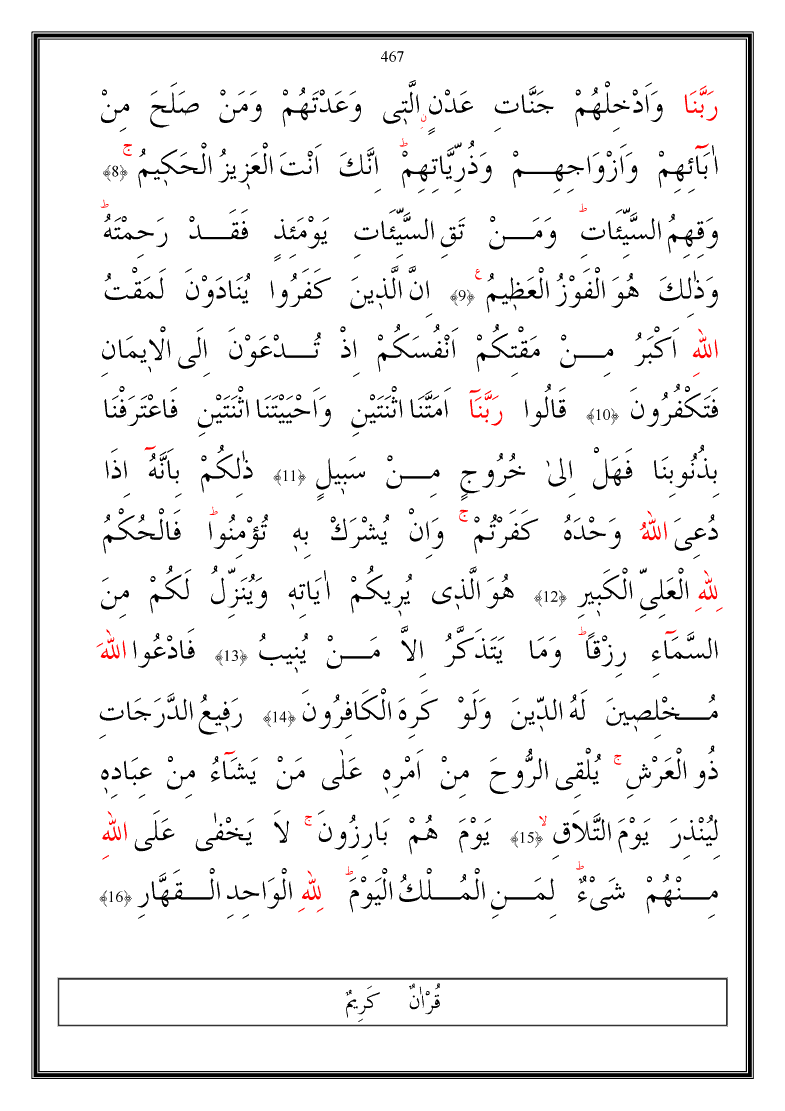 467
رَبَّنَا وَاَدْخِلْهُمْ جَنَّاتِ عَدْنٍۨ الَّتٖى وَعَدْتَهُمْ وَمَنْ صَلَحَ مِنْ
اٰبَٓائِهِمْ وَاَزْوَاجِهِمْ وَذُرِّيَّاتِهِمْؕ اِنَّكَ اَنْتَ الْعَزٖيزُ الْحَكٖيمُۚ ﴿8﴾
وَقِهِمُ السَّيِّئَاتِؕ وَمَنْ تَقِ السَّيِّئَاتِ يَوْمَئِذٍ فَقَدْ رَحِمْتَهُؕ
وَذٰلِكَ هُوَ الْفَوْزُ الْعَظٖيمُ ࣖ ﴿9﴾ اِنَّ الَّذٖينَ كَفَرُوا يُنَادَوْنَ لَمَقْتُ
اللّٰهِ اَكْبَرُ مِنْ مَقْتِكُمْ اَنْفُسَكُمْ اِذْ تُدْعَوْنَ اِلَى الْاٖيمَانِ
فَتَكْفُرُونَ ﴿10﴾ قَالُوا رَبَّنَٓا اَمَتَّنَا اثْنَتَيْنِ وَاَحْيَيْتَنَا اثْنَتَيْنِ فَاعْتَرَفْنَا
بِذُنُوبِنَا فَهَلْ اِلىٰ خُرُوجٍ مِنْ سَبٖيلٍ ﴿11﴾ ذٰلِكُمْ بِاَنَّهُٓ اِذَا
دُعِىَ اللّٰهُ وَحْدَهُ كَفَرْتُمْۚ وَاِنْ يُشْرَكْ بِهٖ تُؤْمِنُواؕ فَالْحُكْمُ
لِلّٰهِ الْعَلِىِّ الْكَبٖيرِ ﴿12﴾ هُوَ الَّذٖى يُرٖيكُمْ اٰيَاتِهٖ وَيُنَزِّلُ لَكُمْ مِنَ
السَّمَٓاءِ رِزْقاًؕ وَمَا يَتَذَكَّرُ اِلاَّ مَنْ يُنٖيبُ ﴿13﴾ فَادْعُوا اللّٰهَ
مُخْلِصٖينَ لَهُ الدّٖينَ وَلَوْ كَرِهَ الْكَافِرُونَ ﴿14﴾ رَفٖيعُ الدَّرَجَاتِ
ذُو الْعَرْشِۚ يُلْقِى الرُّوحَ مِنْ اَمْرِهٖ عَلٰى مَنْ يَشَٓاءُ مِنْ عِبَادِهٖ
لِيُنْذِرَ يَوْمَ التَّلَاقِۙ ﴿15﴾ يَوْمَ هُمْ بَارِزُونَۚ لاَ يَخْفٰى عَلَى اللّٰهِ
مِنْهُمْ شَىْءٌؕ لِمَنِ الْمُلْكُ الْيَوْمَؕ لِلّٰهِ الْوَاحِدِ الْقَهَّارِ ﴿16﴾
قُرْاٰنٌ كَرٖيمٌ